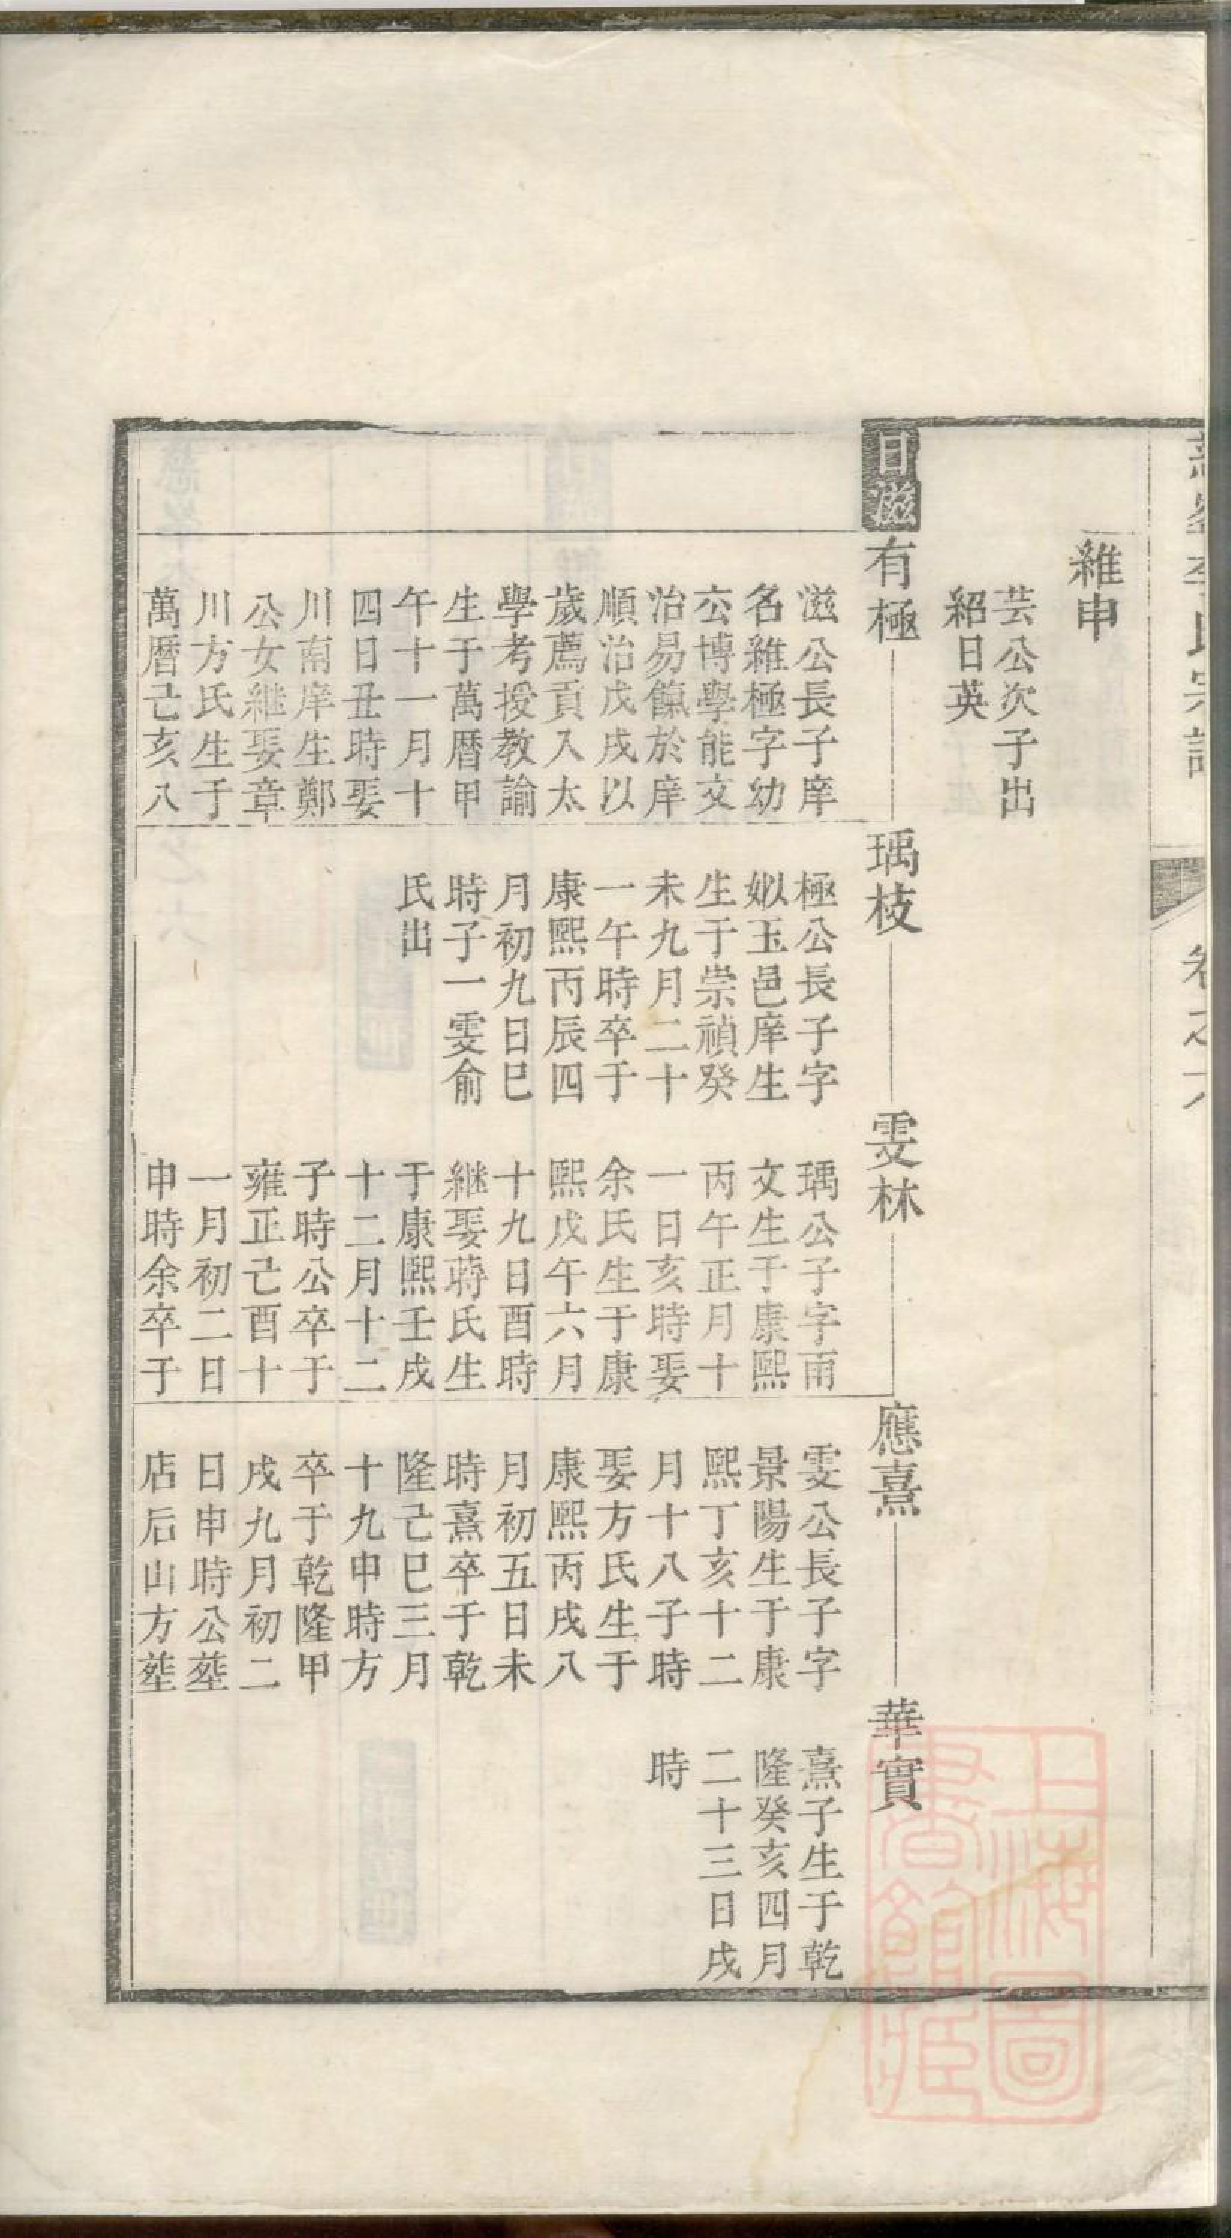 李氏宗譜
卷之六
雒申
芸公次子出
紹日英
日滋
有極
滋公長子庠
名雒極字幼
厺博學能文
治易餼於庠
順治戊戌以
歲薦貢入太
學考授教諭
生于萬曆甲
午十一月十
四日丑時娶
川南庠生鄭
公女継娶章
川方氏生于
萬曆己亥八
瑀枝
極公長子字
姒玉邑庠生
生于崇禎癸
未九月二十
一午時卒于
康熙丙辰四
月初九日巳
時子一雯俞
氏出
雯林
瑀公子字雨
文生于康熙
丙午正月十
一日亥時娶
余氏生于康
熙戊午六月
十九日酉時
継娶蔣氏生
于康熙壬戌
十二月十二
子時公卒于
雍正己酉十
一月初二日
申時余卒于
應熹
雯公長子字
景陽生于康
熙丁亥十二
月十八子時
娶方氏生于
康熙丙戌八
月初五日未
時熹卒于乾
隆己巳三月
十九申時方
卒于乾隆甲
戌九月初二
日申時公塟
店后山方塟
華實
熹子生于乾
隆癸亥四月
二十三日戌
時
上海圖
書館藏